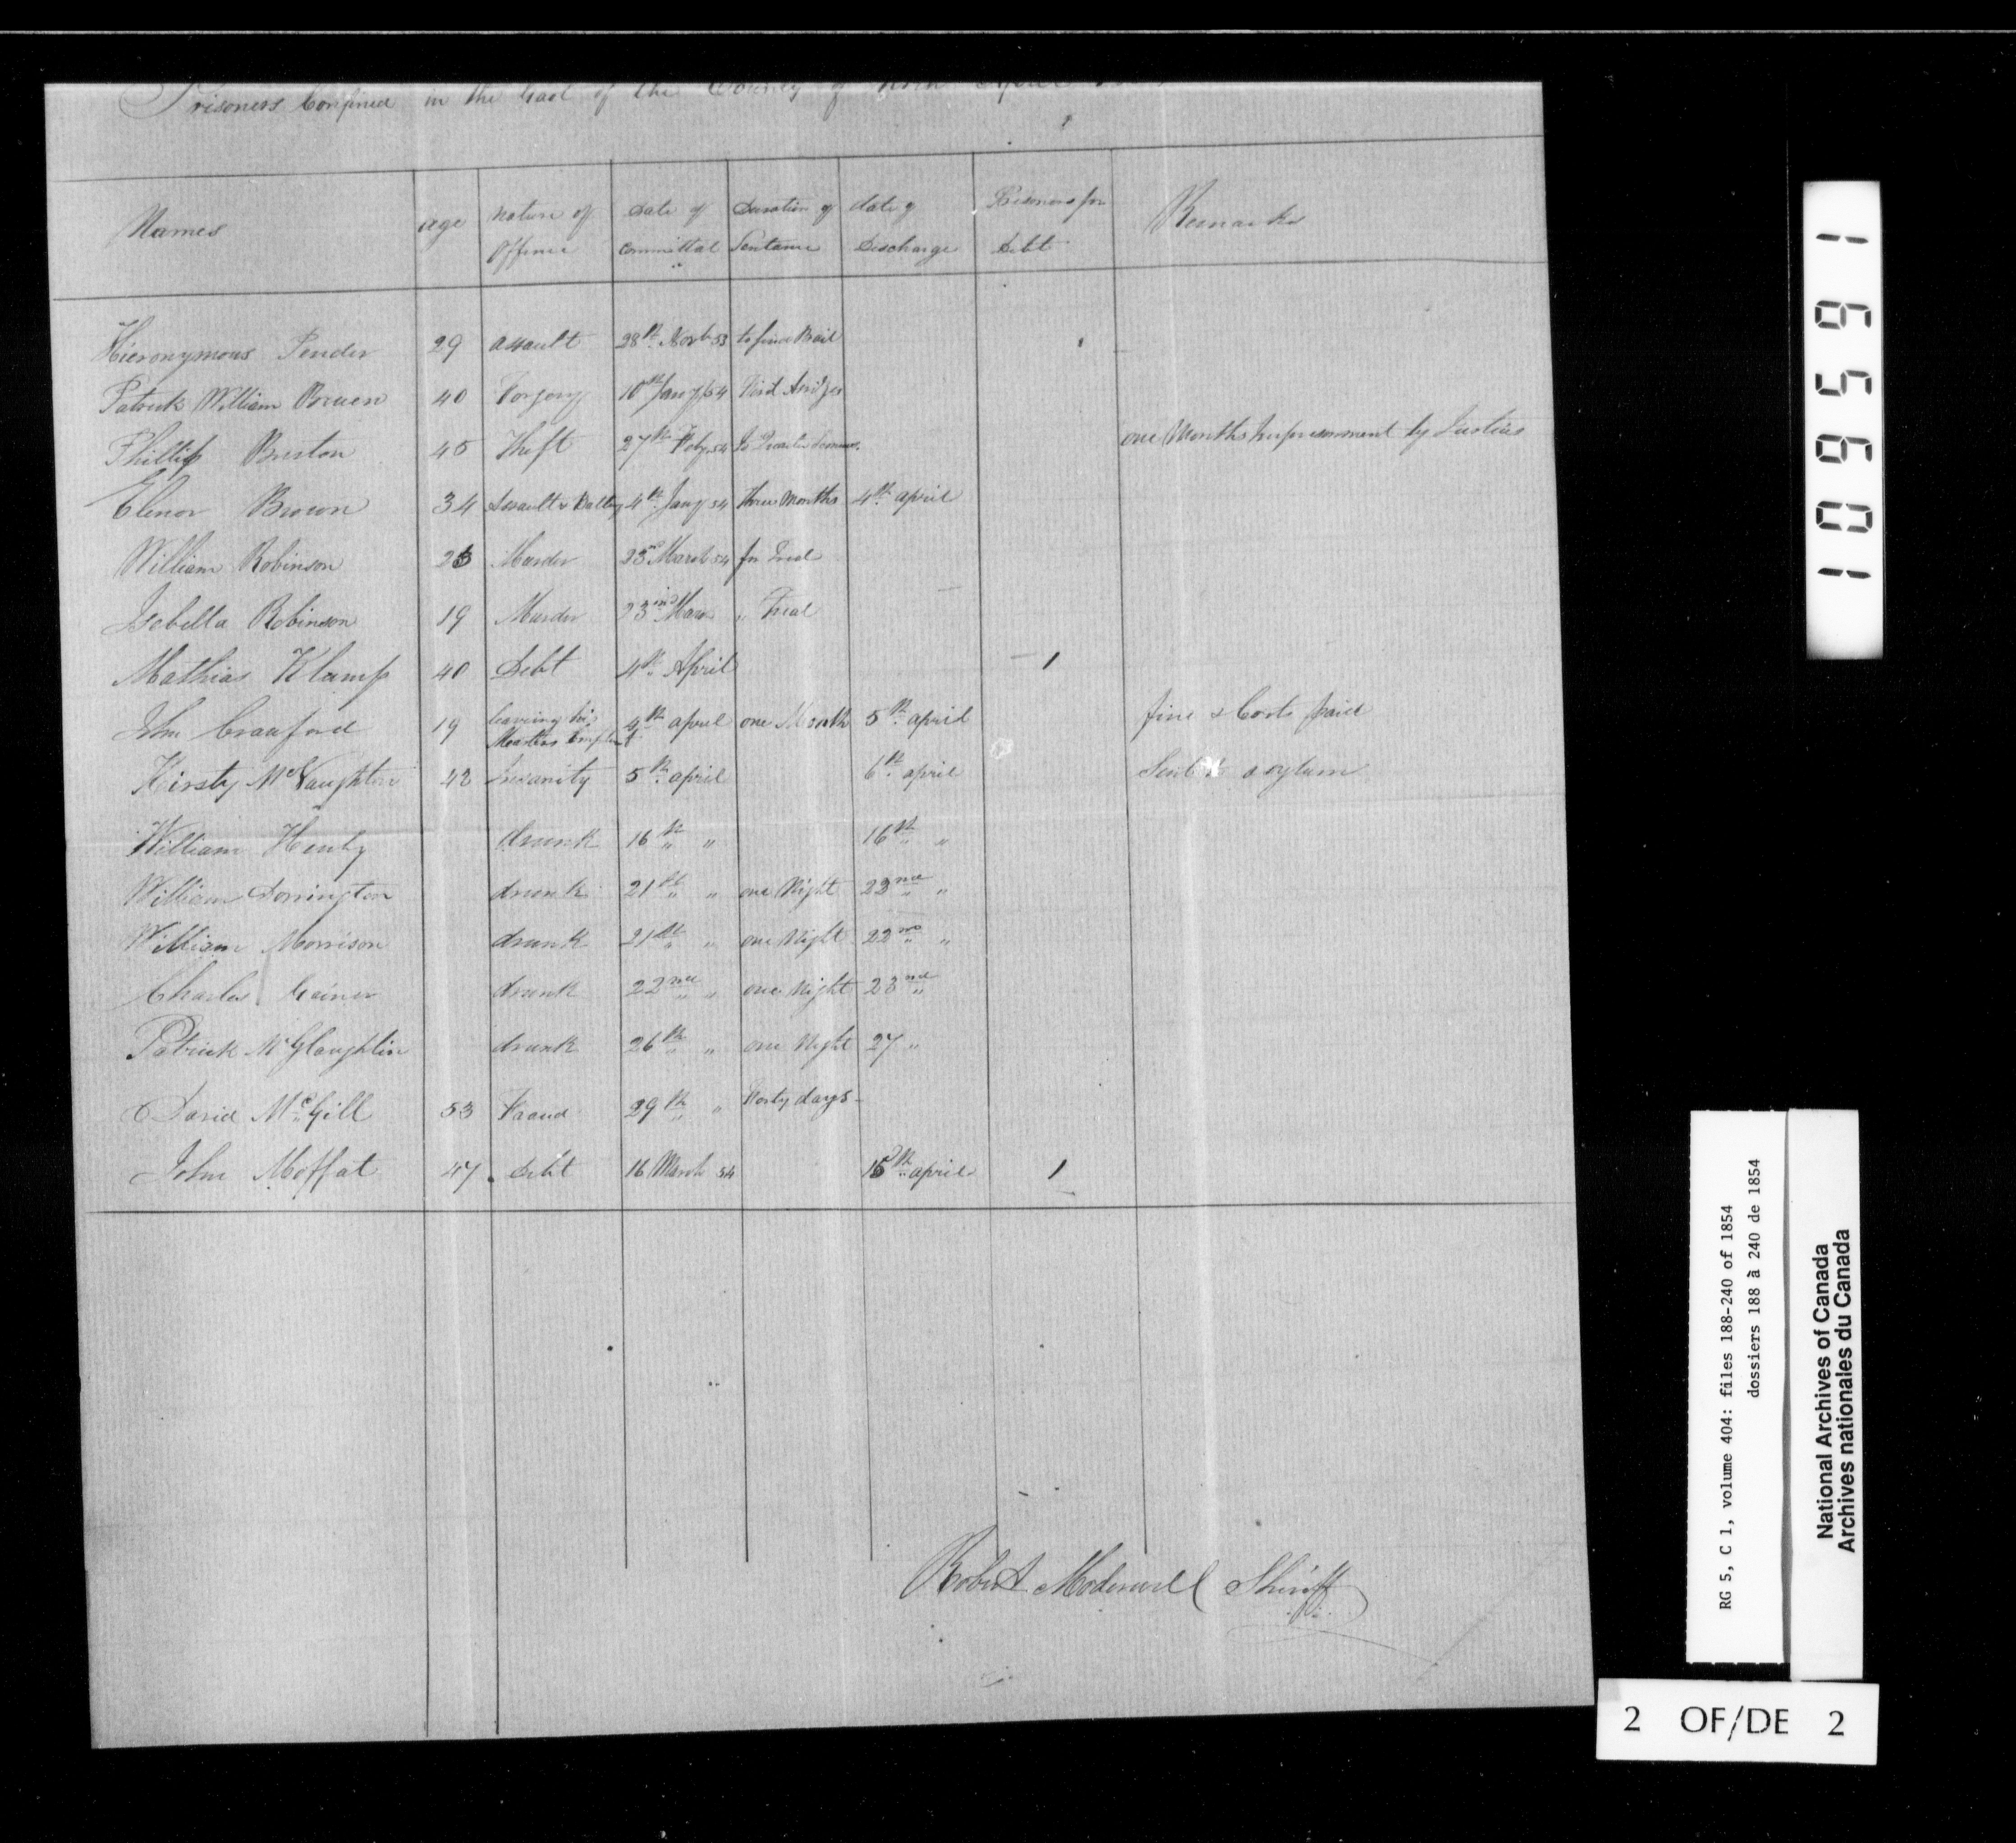 Prisoners Confined in the Gaol of the County of
Names | age | Nature of Offence | Date of Committal | Duration of Sentance | date of Discharge | Prisoners for Debt | Remarks
Hieronymous Pender | 29 | assault | 28th Novb 53 | to find Bail
Patrick William Bruen | 40 | Forgery | 10th Jany 54 | Assizes
Phillip Burton | 45 | Theft | 27th Feby 54 | To Quarter Sessions | one Months Imprisonment by Justices
Elenor Brown | 34 | Assault & Battery | 4th Jany 54 | three Months | 4th april
William Robinson | 23 | Murder | 23rd March 54 | for Trial
Isabella Robinson | 19 | Murder | 23 March | " Trial
Mathias Klump | 40 | Debt | 4th April | 1
Jhn Crauford | 19 | leaving his Masters Emplmt | 4th april | one Month | 5th april | fine & Costs paid
Kirsty McNaughton | 42 | Insanity | 5th april | 6th april | Sent to asylum
William Henby | drunk | 16th " | 16th "
William Dorrington | drunk | 21st " | one Night | 22nd "
William Morrison | drunk | 21st " | one Night | 22nd "
Charles Gainer | drunk | 22nd " | one Night | 23nd "
Patrick McGlaughlin | drunk | 26th " | one Night | 27 "
David McGill | 53 | Fraud | 29th " | Forty days
John Moffat | 47 | debt | 16 March 54 | 15th april | 1
Robert Moderwell Sheriff
109591
RG 5, C 1, volume 404: files 188-240 of 1854
dossiers 188 à 240 de 1854
National Archives of Canada
Archives nationales du Canada
2 OF/DE 2